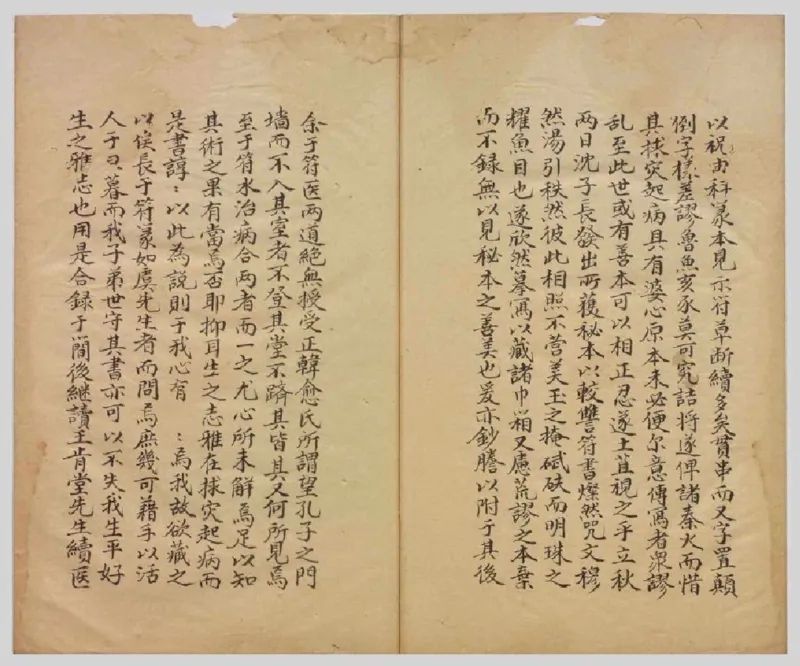 以祝由科篆本見示符草斷續多矣貫串而又字置顛
倒字樣差謬魯魚亥豕莫可究詰將遂俾諸秦火而惜
其捄災起病具有婆心原本未必便尔意傳寫者眾謬
乱至此世或有善本可以相正忍遂土苴視之乎立秋
两日沈子長發出所蒦秘本以較讐符書燦然咒文穆
然湯引秩然彼此相照不啻美玉之掩碔砆而明珠之
耀魚目也遂欣然摹寫以藏諸巾箱又慮荒謬之本棄
而不録無以見秘本之善美也爰亦鈔謄以附于其後
余于符医两道絕無授受正韓愈氏所謂望孔子之門
墙而不入其室者不登其堂不躋其皆其又何所見焉
至于符水治病合两者而一之尤心所未解焉足以知
其術之果有當焉否耶抑耳生之志雅在捄災起病而
是書諄〻以此為說則于我心有〻焉我故欲藏之
以俟長于符篆如虞先生者而問焉庶幾可藉手以活
人于旦暮而我子弟世守其書亦可以不失我生平好
生之雅志也用是合録于簡後継讀王肯堂先生續医